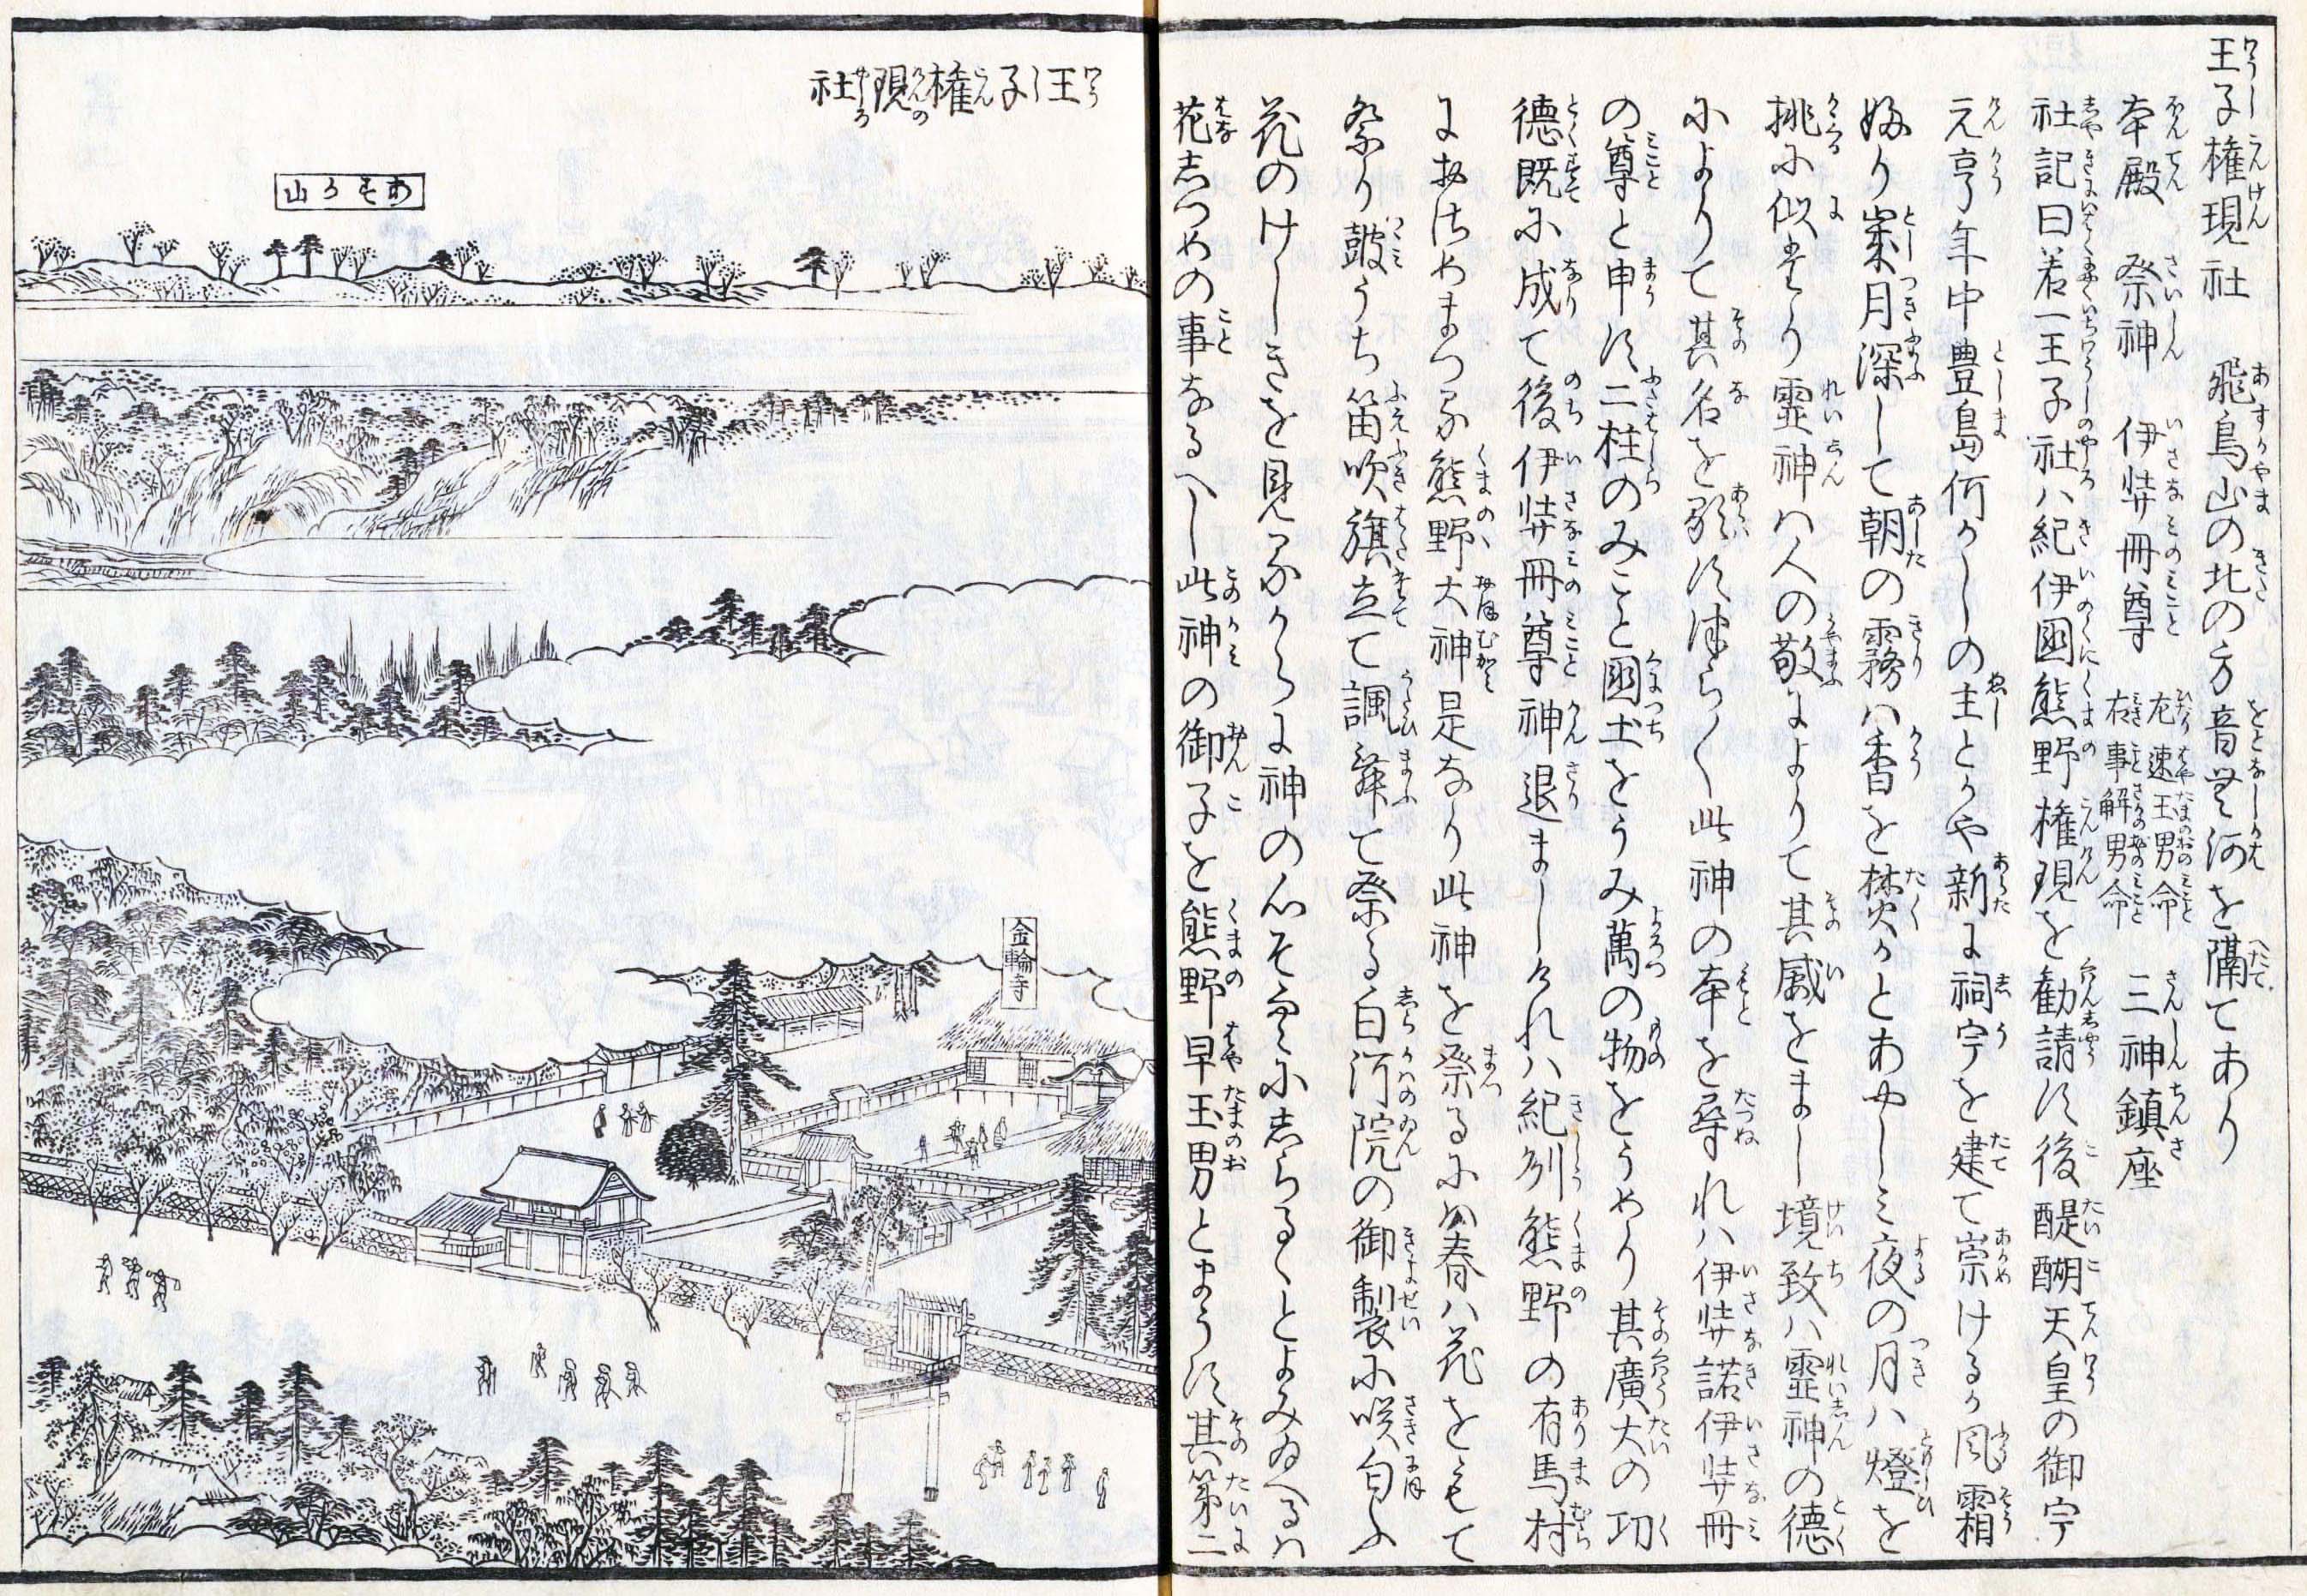 王子権現社　飛鳥山の北の方音無河を隔てあり
本殿　祭神　伊弉冊尊　左速玉男命　右事解男命　三神鎮座
社記曰若一王子社ハ紀伊國熊野権現を勧請す後醍醐天皇の御宇
元亨年中豊島何かしの主とかや新に祠宇を建て崇けるか風霜
ふり累月深して朝の霧ハ香を焚かとあやしミ夜の月ハ燈を
挑に似たり靈神ハ人の敬によりて其威をまし境致ハ靈神の德
によりて其名を顕す津らく此神の本を尋れハ伊弉諾伊弉冊
の尊と申す二柱のみこと國土をうみ萬の物をうめり其廣大の功
德既に成て後伊弉冊尊神退ましけれハ紀州熊野の有馬村
におさめまつる熊野大神是なり此神を祭るにハ春ハ花をもて
祭り皷うち笛吹旗立て諷舞て祭る白河院の御製に咲匂ふ
花のけしきを見るからに神の心そ空にしらるゝとよみ給へるハ
花しつめの事なるへし此神の御子を熊野早玉男とまうす其第二
王子権現社
あすか山
金輪寺